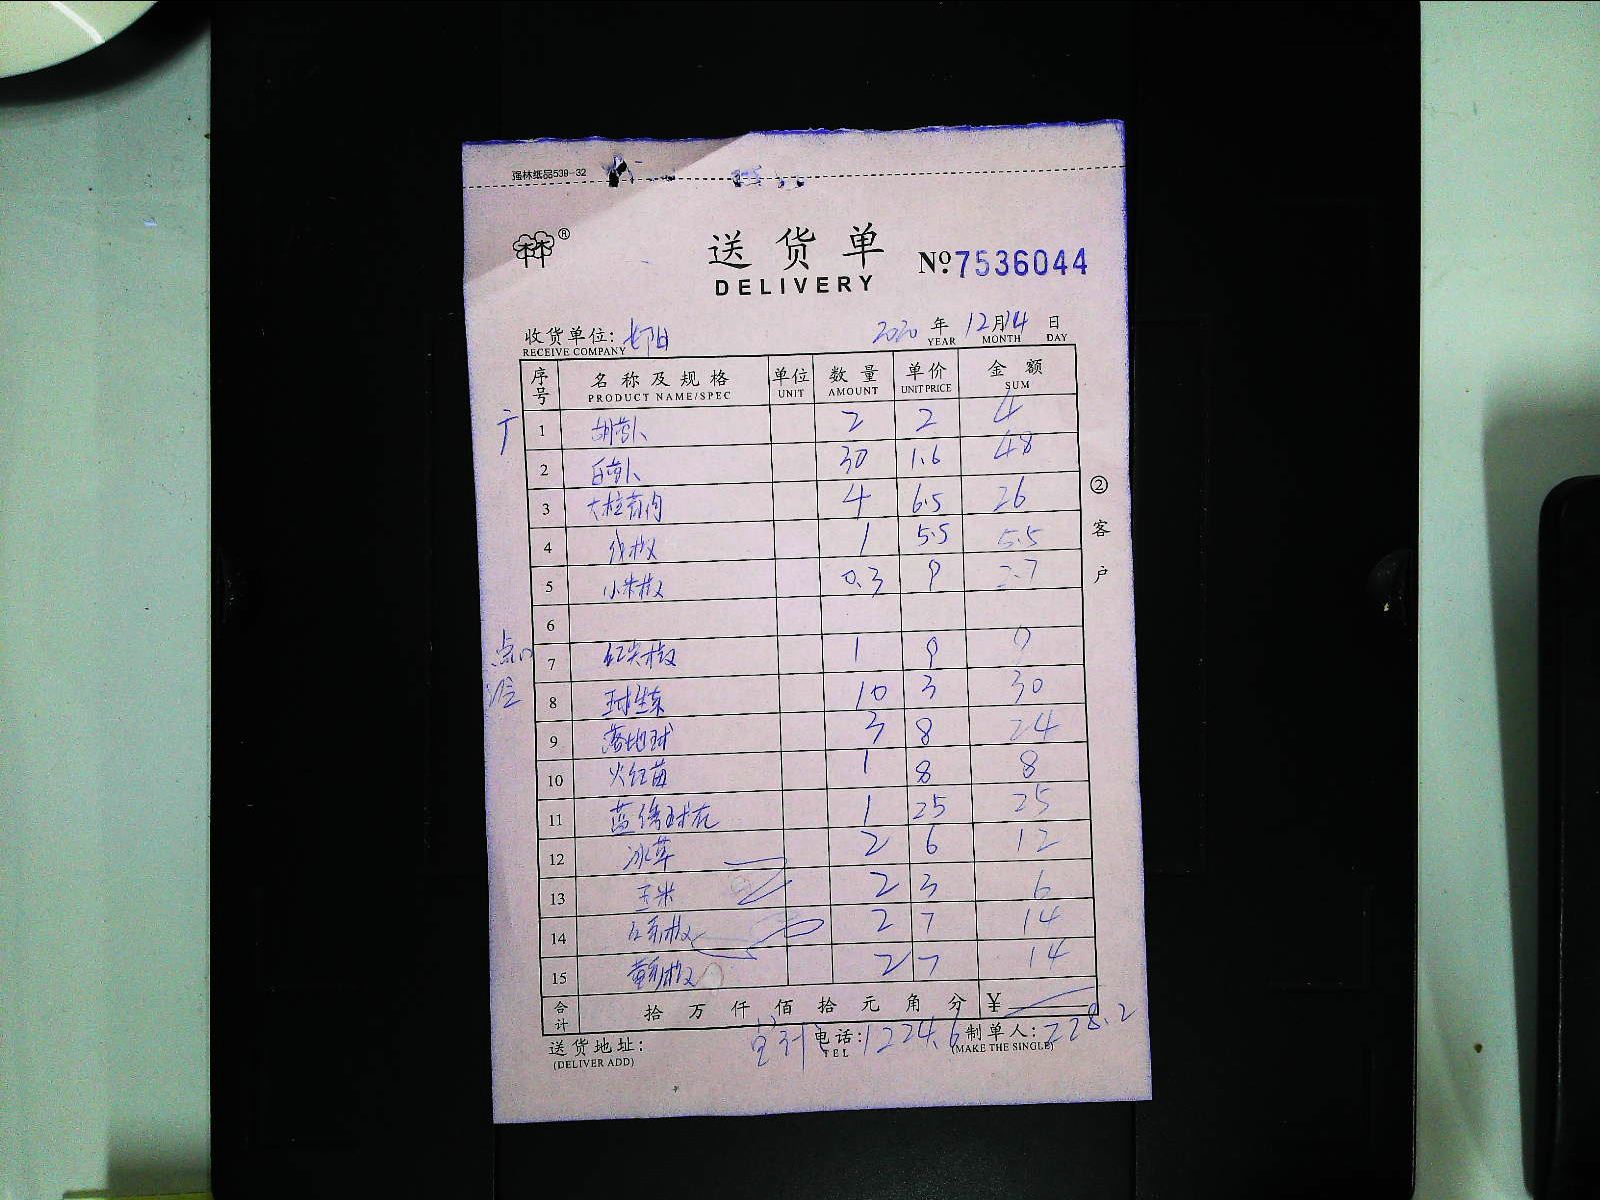 强林纸品539-32
林林®
送货单
DELIVERY
№7536044
收货单位:
RECEIVE COMPANY
2020年12月14日
YEAR MONTH DAY
序号 名称及规格 单位 数量 单价 金额
PRODUCT NAME/SPEC UNIT AMOUNT UNIT PRICE SUM
1 胡萝卜 2 2 4
2 白萝卜 30 1.6 48
3 4 6.5 26
4 1 5.5 5.5
5 小米椒 0.3 9 2.7
6
点心
7 红尖椒 1 9 9
8 球生菜 10 3 30
9 落地球 3 8 24
10 火红苗 1 8 8
11 蓝绣球花 1 25 25
12 冰草 2 6 12
13 玉米 2 3 6
14 红彩椒 2 7 14
15 黄彩椒 2 7 14
合计 拾万仟佰拾元角分 ¥
②客户
送货地址:
(DELIVER ADD)
电话: 1224.6
TEL
制单人: 228.2
(MAKE THE SINGLE)